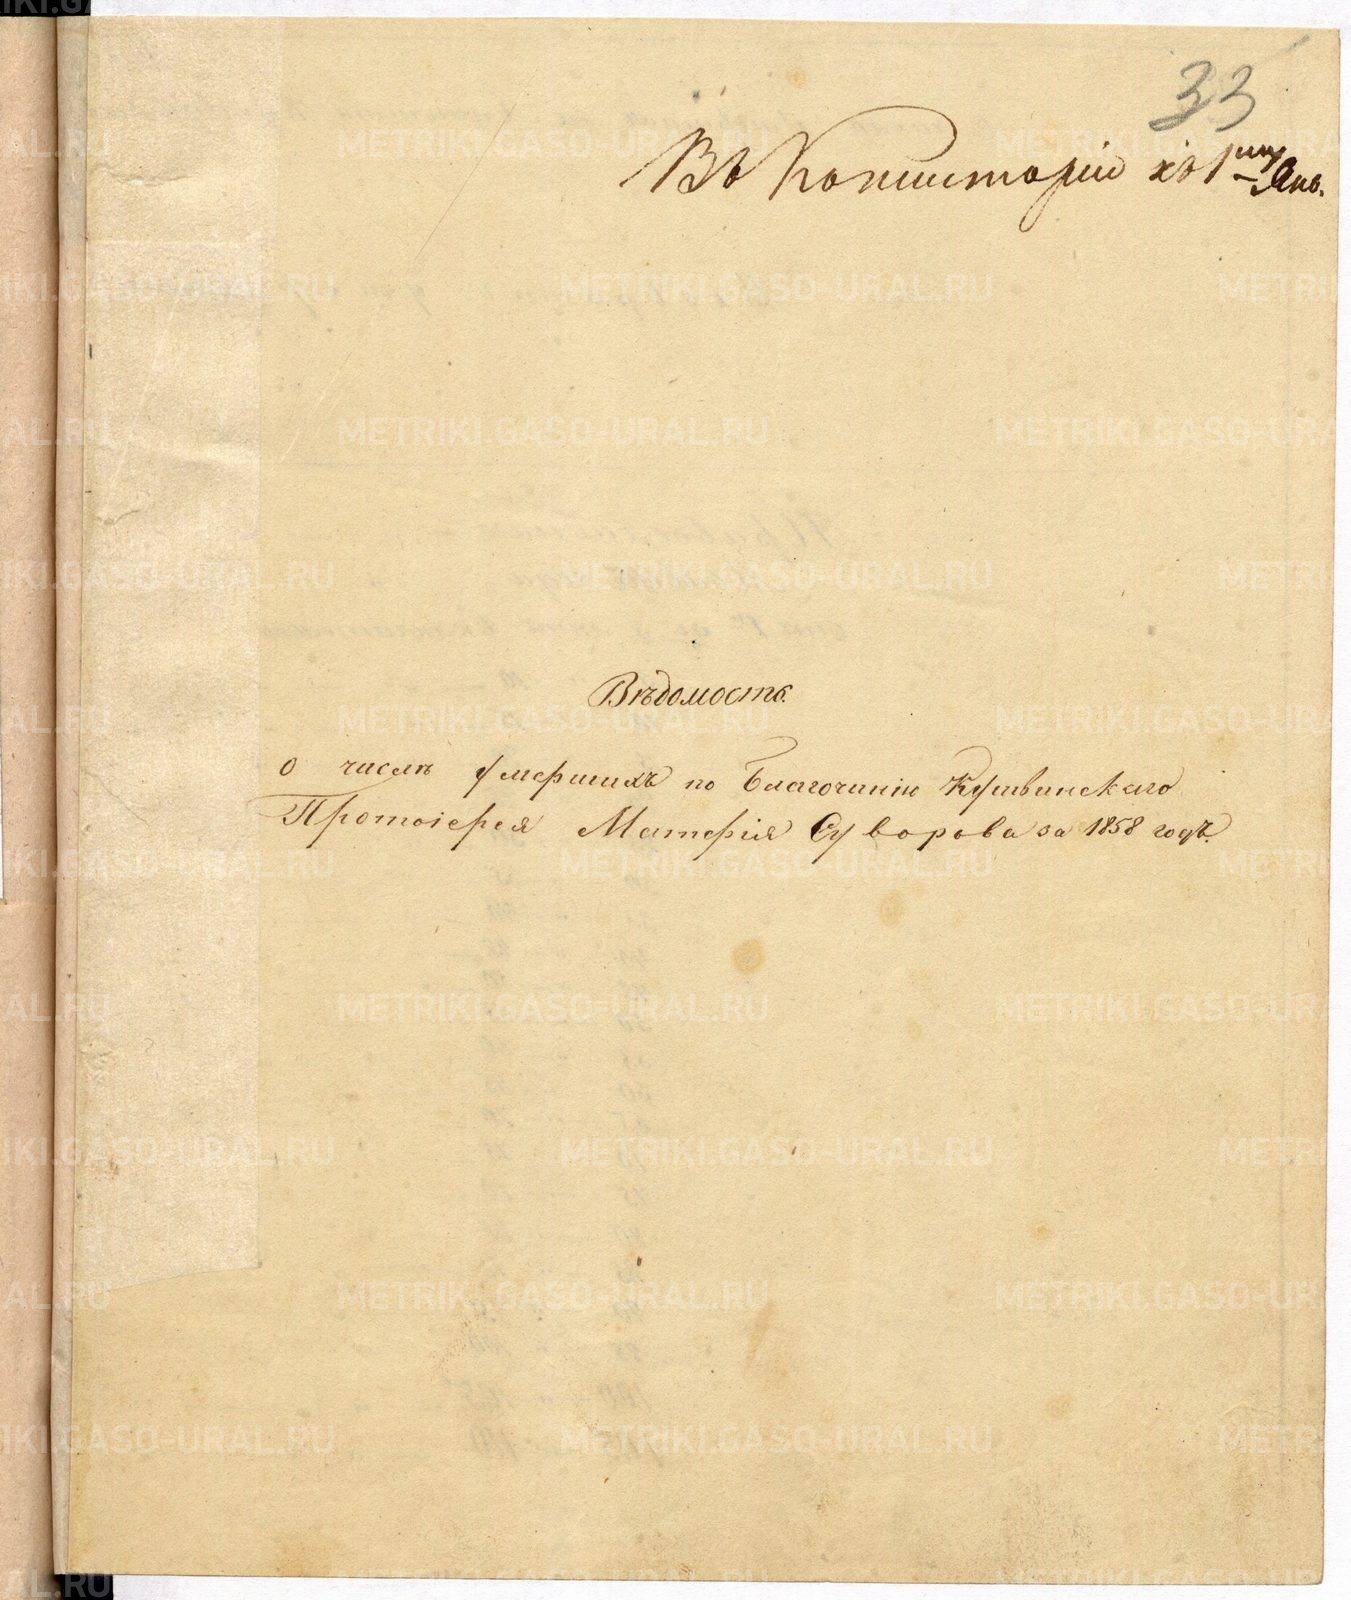 33
Въ Консисторіи къ 1му Янв.
Вѣдомость.
о числѣ умершихъ по Благочинію Кушвинскаго
Протоіерея Матфія Суворова за 1858 годъ.
METRIKI.GASO-URAL.RU